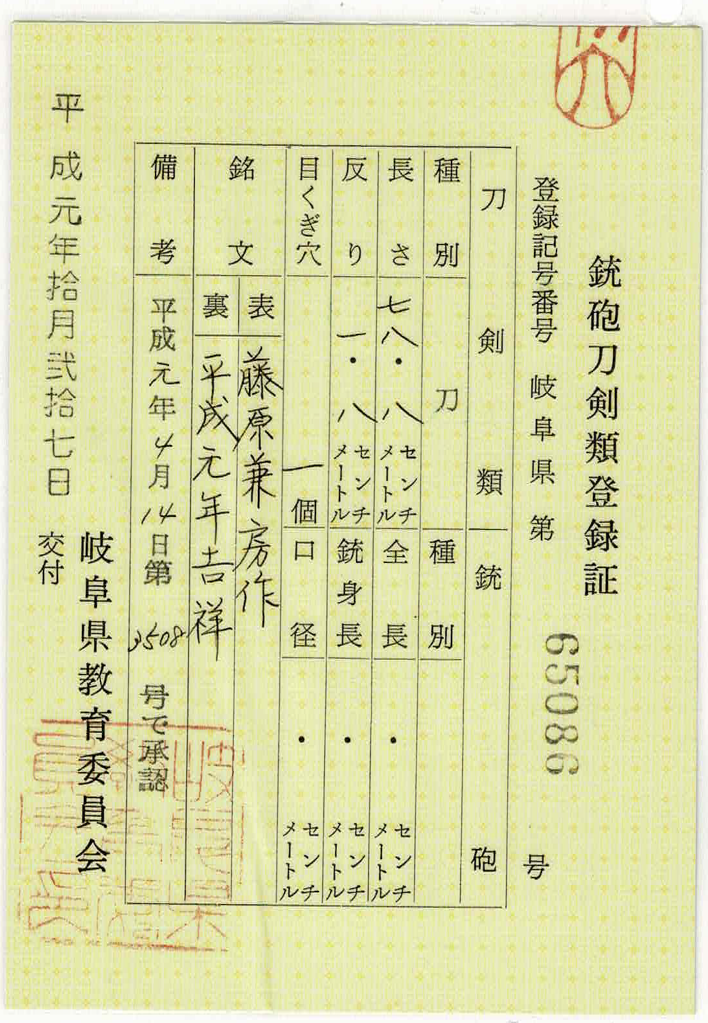 銃砲刀剣類登録証
登録記号番号 岐阜県 第 65086 号
刀剣類
種別 刀
長さ 七八・八 センチメートル
反り 一・八 センチメートル
目くぎ穴 一個
銘文
表 藤原兼房作
裏 平成元年吉祥
備考 平成元年4月14日第3508号で承認
銃砲
種別
全長 ・ センチメートル
銃身長 ・ センチメートル
口径 ・ センチメートル
平成元年拾月弐拾七日
岐阜県教育委員会
交付